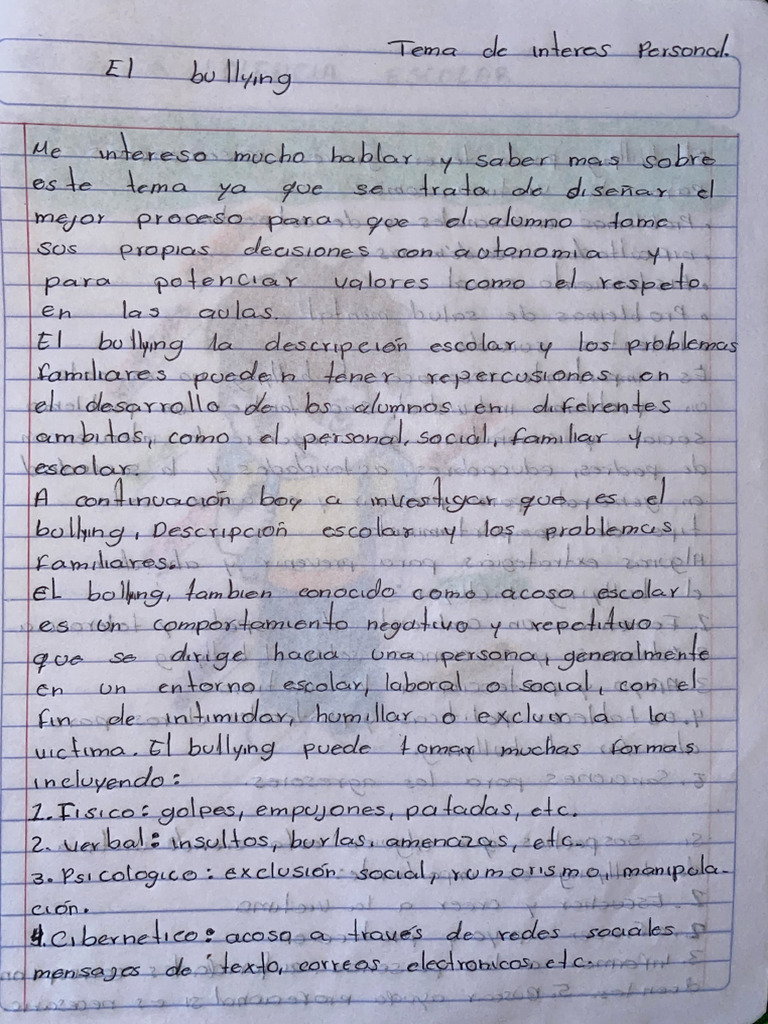 Tema de interes Personal.
El bullying
Me intereso mucho hablar y saber mas sobre
este tema ya que se trata de diseñar el
mejor proceso para que el alumno tome
sus propias decisiones con autonomia y
para potenciar valores como el respeto
en las aulas.
El bullying la descripción escolar y los problemas
familiares pueden tener repercusiones en
el desarrollo de los alumnos en diferentes
ambitos, como el personal, social, familiar y
escolar.
A continuación boy a investigar que es el
bullying, Descripción escolar y los problemas
familiares.
El bollyng, tambien conocido como acoso escolar
es un comportamiento negativo y repetitivo
que se dirige hacia una persona, generalmente
en un entorno escolar, laboral o social, con el
fin de intimidar, humillar o excluir a la
victima. El bullying puede tomar muchas formas
incluyendo:
1. Fisico: golpes, empujones, patadas, etc.
2. verbal: insultos, burlas, amenazas, etc.
3. Psicologico: exclusión social, rumorismo, manipula-
ción.
4. Cibernetico: acoso a través de redes sociales
mensages de texto, correos electronicos, etc.